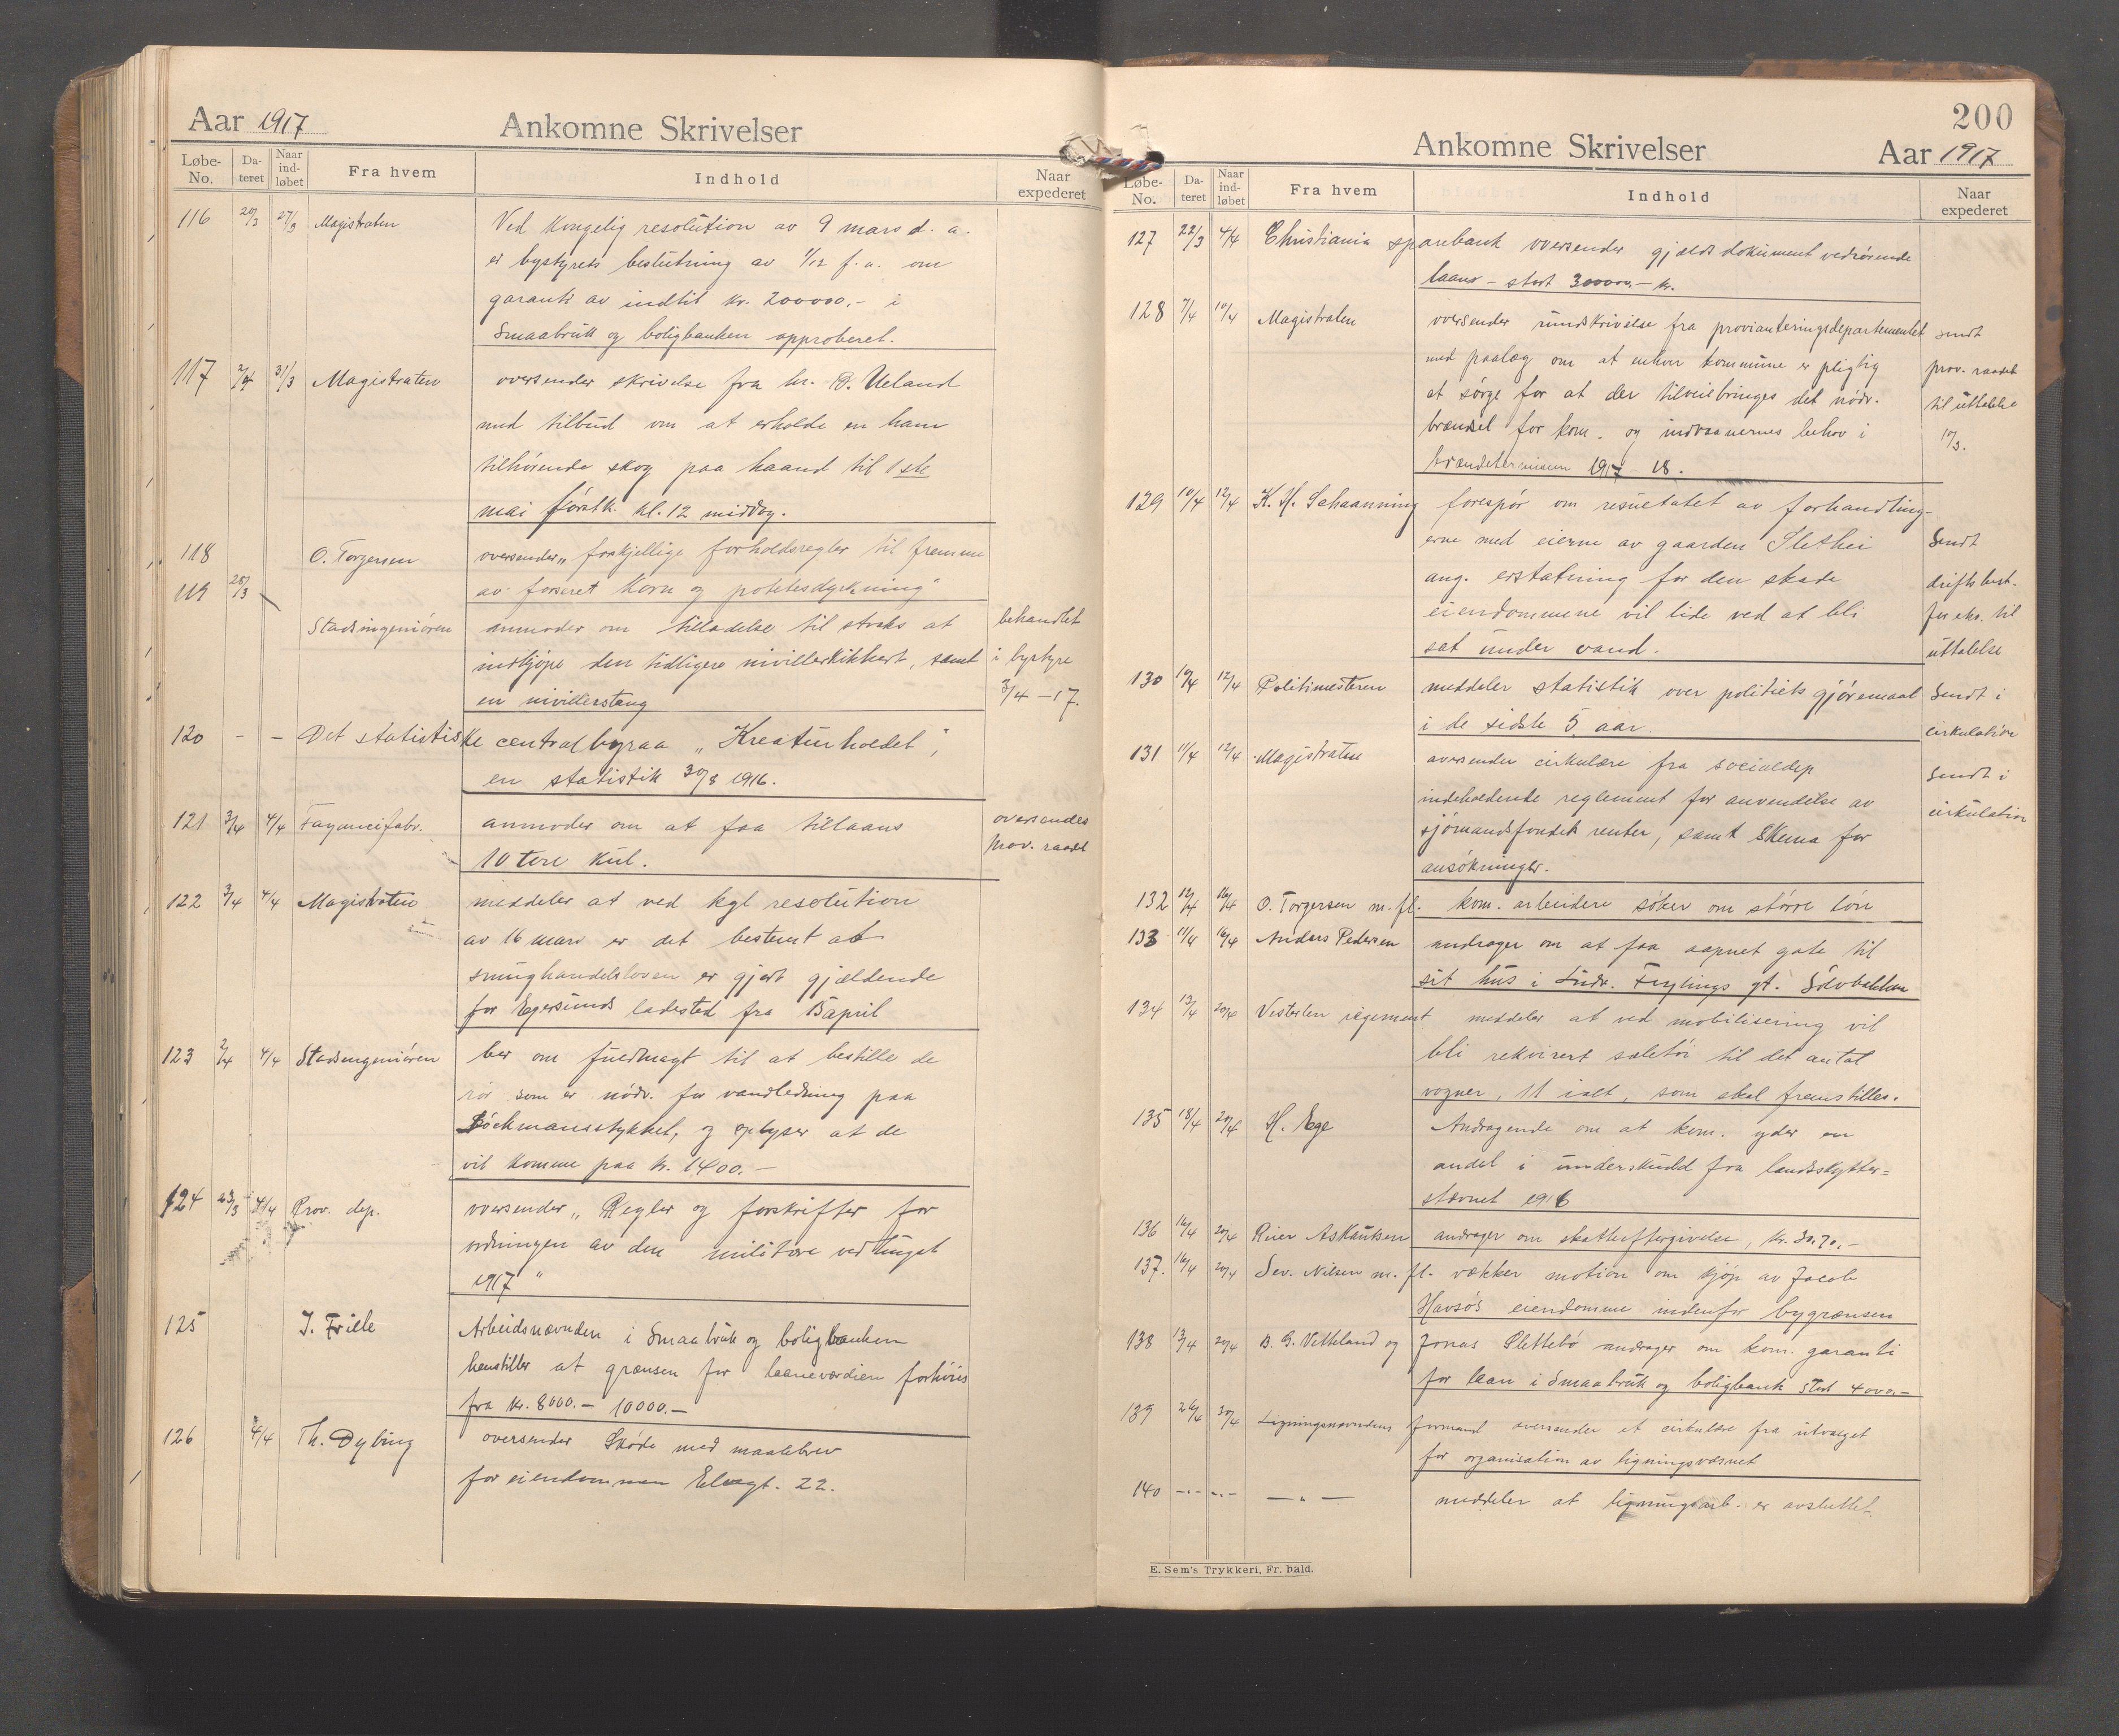 Aar 1917 Ankomne Skrivelser
Løbe-No. Da-teret Naar ind-løbet Fra hvem Indhold Naar expederet
116 20/3 27/3 Magistraten Ved Kongelig resolution av 9 mars d. a.
er bystyrets beslutning av 1/12 f. a. om
garanti av indtil kr. 200000.- i
Smaabruk og boligbanken approberet.
117 31/3 Magistraten oversender skrivelse fra hr. Ueland
med tilbud om at erholde en ham
tilhørende skog paa haand til 1ste
mai førstk. kl. 12 middag.
118 O. Torgersen oversender „forskjellige forholdsregler til fremme
119 28/3 av forseret Korn og potetesdyrkning"
Stadsingeniøren anmoder om tilladelse til straks at behandlet
indkjøpe den tidligere nivillerkikkert, samt i bystyre
en nivillerstang 3/4 - 17.
120 - - Det statistiske centralbyraa „Kreaturholdet",
en statistik 30/8 1916.
121 3/4 4/4 Fayancefabr. anmoder om at faa tillaans oversendes
10 tons kul. prov. raadet
122 3/4 4/4 Magistraten meddeler at ved kgl resolution
av 16 mars er det bestemt at
smughandelsloven er gjort gjældende
for Egersunds ladested fra 15 april
123 2/4 4/4 Stadsingeniøren ber om fuldmagt til at bestille de
rør som er nødv. for vandledning paa
Bøckmansstykket, og oplyser at de
vil komme paa kr. 1400.-
124 23/3 4/4 Prov. dep. oversender „Regler og forskrifter for
ordningen av den militære vedhugst
1917"
125 J. Friele Arbeidsnævnden i Smaabruk og boligbanken
henstiller at grænsen for laaneværdien forhøies
fra kr. 8000.- 10000.-
126 4/4 Th. Dybing oversender Skøde med maalebrev
for eiendommen Elvegt. 22.
200
Ankomne Skrivelser Aar 1917
Løbe-No. Da-teret Naar ind-løbet Fra hvem Indhold Naar expederet
127 22/3 4/4 Christiania sparebank oversender gjældsdokument vedrørende
laans - stort 300000.- kr.
128 7/4 10/4 Magistraten oversender rundskrivelse fra provianteringsdepartementet sendt
med paalæg om at enhver kommune er pligtig prov. raadet
at sørge for at der tilveiebringes det nødv. til uttalelse
brændsel for kom. og indvaanernes behov i 10/3.
brændeterminen 1917-18.
129 10/4 12/4 K. H. Schaanning forespør om resultatet av forhandling-
erne med eierne av gaarden Slethei Sendt
ang. erstatning for den skade driftsbest.
eiendommene vil lide ved at bli for eks. til
sat under vand. uttalelse
130 10/4 12/4 Politimesteren meddeler statistik over politiets gjøremaal Sendt i
i de sidste 5 aar. cirkulation
131 11/4 12/4 Magistraten oversender cirkulære fra socialdep Sendt i
indeholdende reglement for anvendelse av cirkulation
sjømandsfondets renter, samt Skema for
ansøkninger.
132 12/4 16/4 O. Torgersen m. fl. kom. arbeidere søker om større løn
133 11/4 16/4 Anders Pedersen andrager om at faa aapnet gate til
sit hus i Ludv. Feylings gt. Sølvbakken
134 13/4 20/4 Vesterlen regement meddeler at ved mobilisering vil
bli rekvirert seletøi til det antal
vogner, 11 ialt, som skal fremstilles.
135 18/4 20/4 H. Ege Andragende om at kom. yder en
andel i underskudd fra landsskytter-
stævnet 1916
136 16/4 20/4 Reier Aslaksen andrager om skatteeftergivelse, kr. 30.70.-
137. 16/4 20/4 Sev. Nilsen m. fl. vækker motion om kjøp av Jacob
Havsøs eiendomme indenfor bygrænsen
138 13/4 20/4 B. G. Vetteland og Jonas Slettebø andrager om kom. garanti
for laan i Smaabruk og boligbank stort 4000.-
139 26/4 30/4 Ligningsnævndens formand oversender et cirkulære fra utvalget
for organisation av ligningsvæsnet
140 -"- -"- -"- meddeler at ligningsarb. er avsluttet
E. Sem's Trykkeri, Fr. hald.